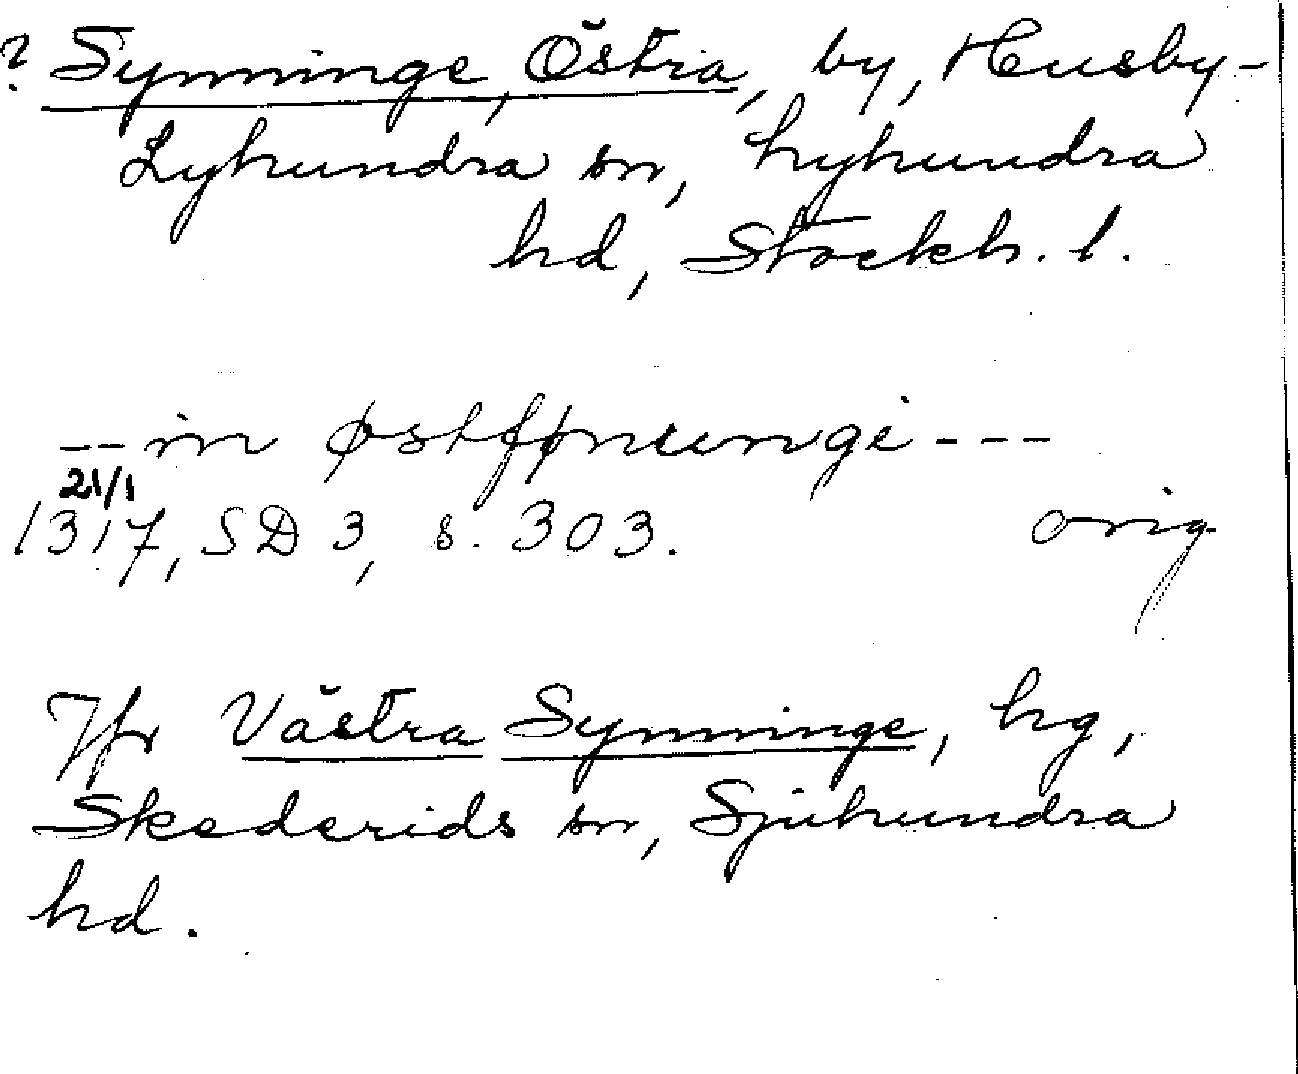 ? Synninge, Östra, by, Husby-
Lyhundra sn, Lyhundra
hd, Stockh. l.
-- in østfønunge ---
21/1
1317, SD 3, s. 303. orig
Jfr Västra Synninge, hg,
Skederids sn, Sjuhundra
hd.